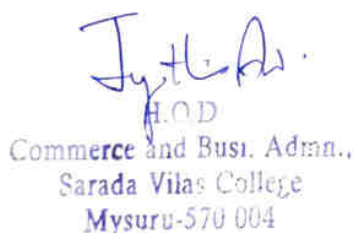 H.O.D
Commerce and Busi. Admn.,
Sarada Vilas College
Mysuru-570 004